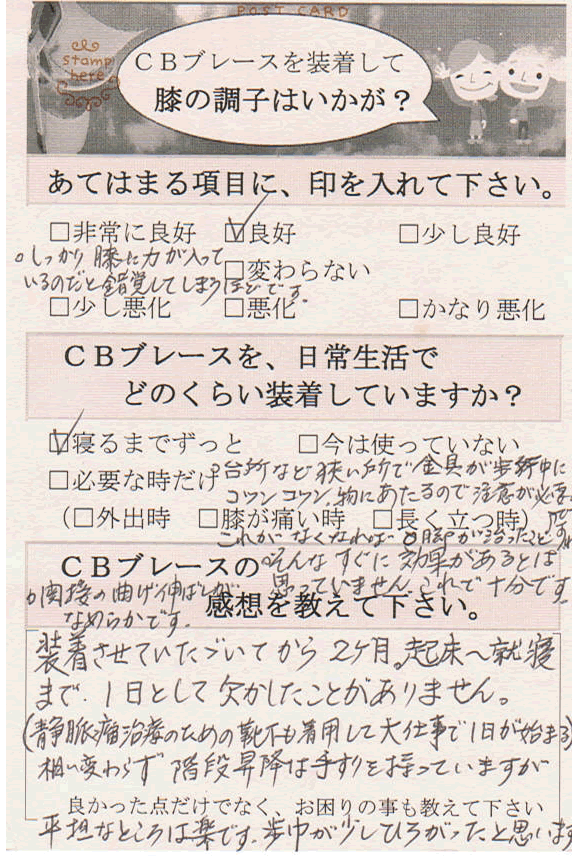 POST CARD
stamp
here
CBブレースを装着して
膝の調子はいかが？
あてはまる項目に、印を入れて下さい。
□非常に良好 ☑良好 □少し良好
○しっかり膝に力が入って
□変わらない
いるのだと錯覚してしまうほどです。
□少し悪化 □悪化 □かなり悪化
CBブレースを、日常生活で
どのくらい装着していますか？
☑寝るまでずっと □今は使っていない
□必要な時だけ
○台所など狭い所で金具が
コツンコツン、物にあたるので注意が必要
（□外出時 □膝が痛い時 □長く立つ時）
これがなくなれば
CBブレースの
○そんなすぐに効果があるとは
思っていません。これで十分です
○関接の曲げ伸ばしが
感想を教えて下さい。
なめらかです。
装着させていただいてから2ヶ月。起床～就寝
まで、1日として欠かしたことがありません。
（静脈瘤治療のための靴下も着用して大仕事で1日が始まる）
相い変わらず階段昇降は手すりを持っていますが
良かった点だけでなく、お困りの事も教えて下さい
平坦なところは楽です。歩巾が少しひろがったと思います